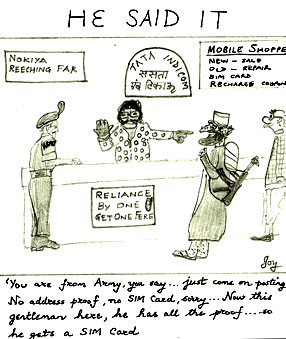 HE SAID IT
NOKIYA
REECHING FAR
TATA INDICOM
सस्ता
MOBILE SHOPPE
NEW - SALE
OLD - REPAIR
SIM CARD
RECHARGE COUPON
RELIANCE
BY ONE
GET ONE FERE
Joy
'You are from Army, you say... just come on posting
No address proof, no SIM Card, sorry... Now this
gentleman here, he has all the proof... so
he gets a SIM Card